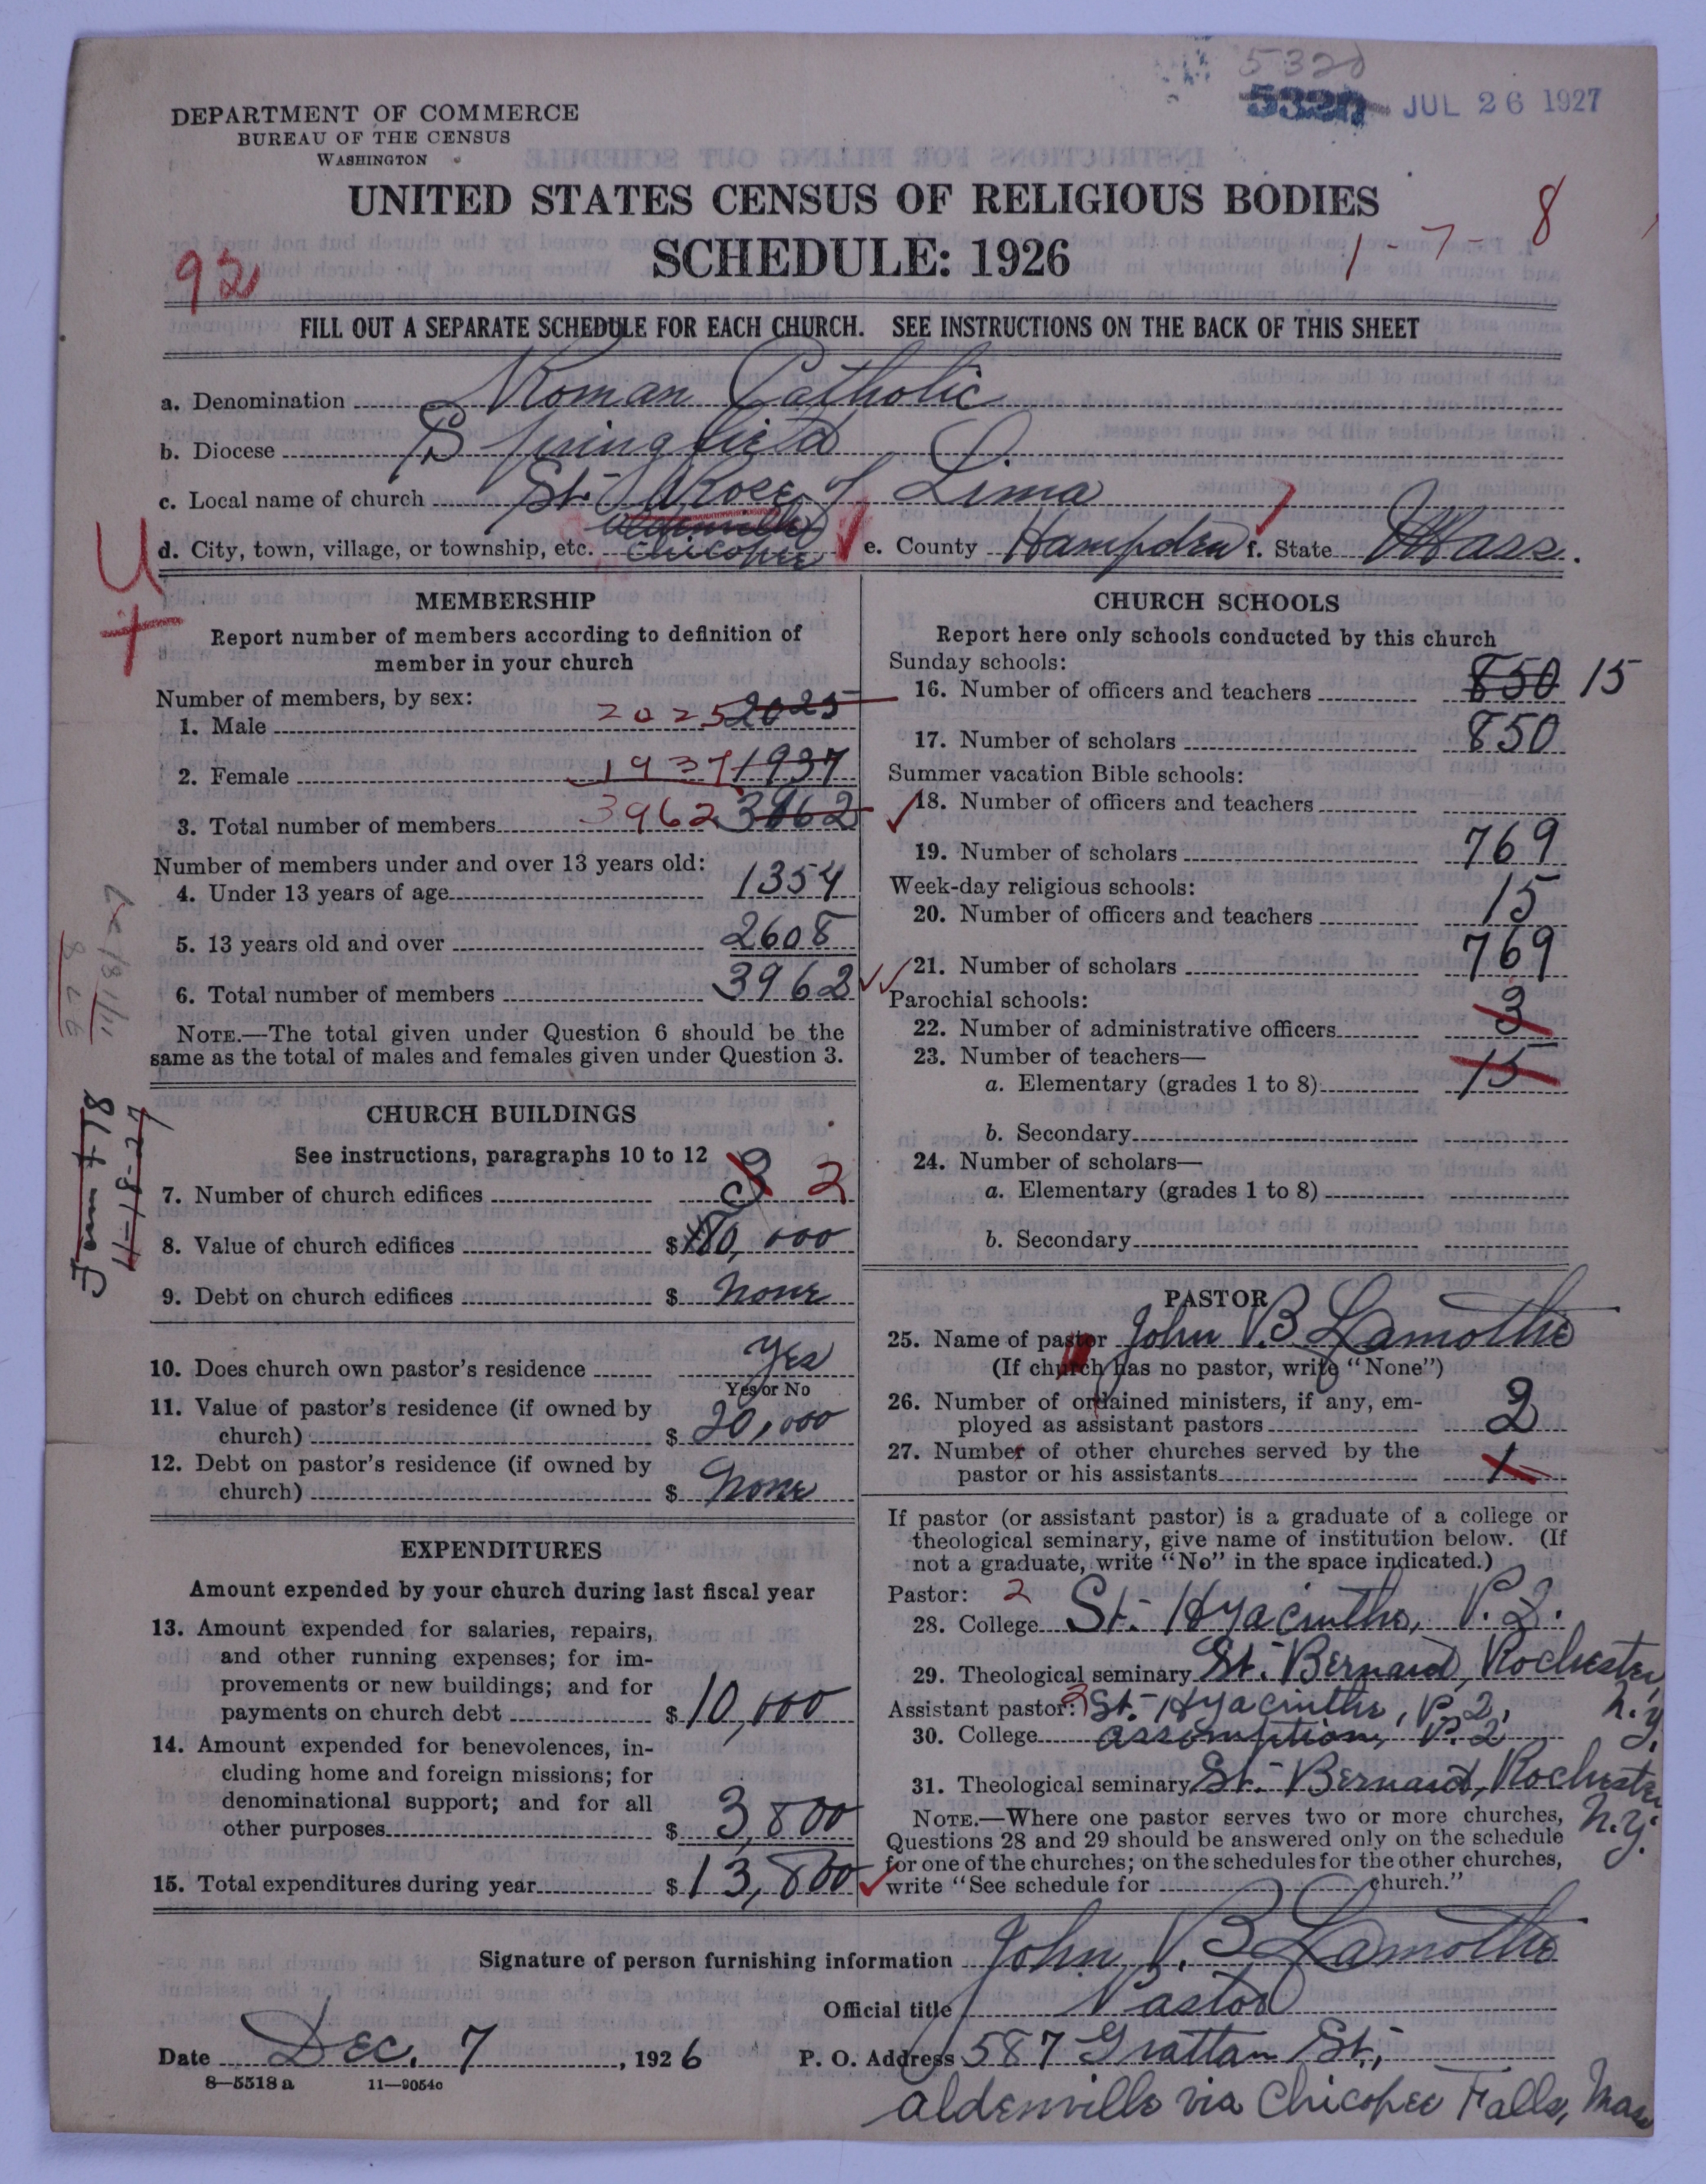 5320
5320 JUL 26 1927
DEPARTMENT OF COMMERCE
BUREAU OF THE CENSUS
WASHINGTON
UNITED STATES CENSUS OF RELIGIOUS BODIES
SCHEDULE: 1926
92
1-7-8
FILL OUT A SEPARATE SCHEDULE FOR EACH CHURCH. SEE INSTRUCTIONS ON THE BACK OF THIS SHEET
a. Denomination Roman Catholic
b. Diocese Springfield
c. Local name of church St. Rose of Lima
Aldenville
d. City, town, village, or township, etc. Chicopee e. County Hampden f. State Mass.
U
+
MEMBERSHIP
Report number of members according to definition of
member in your church
Number of members, by sex:
1. Male 2025 2025
2. Female 1937 1937
3. Total number of members 3962 3862
Number of members under and over 13 years old:
4. Under 13 years of age 1354
5. 13 years old and over 2608
6. Total number of members 3962
NOTE.—The total given under Question 6 should be the
same as the total of males and females given under Question 3.
CHURCH BUILDINGS
See instructions, paragraphs 10 to 12
7. Number of church edifices 3 2
8. Value of church edifices $ 180,000
9. Debt on church edifices $ none
10. Does church own pastor's residence Yes
Yes or No
11. Value of pastor's residence (if owned by
church) $ 20,000
12. Debt on pastor's residence (if owned by
church) $ none
EXPENDITURES
Amount expended by your church during last fiscal year
13. Amount expended for salaries, repairs,
and other running expenses; for im-
provements or new buildings; and for
payments on church debt $ 10,000
14. Amount expended for benevolences, in-
cluding home and foreign missions; for
denominational support; and for all
other purposes $ 3,800
15. Total expenditures during year $ 13,800
CHURCH SCHOOLS
Report here only schools conducted by this church
Sunday schools:
16. Number of officers and teachers 850 15
17. Number of scholars 850
Summer vacation Bible schools:
18. Number of officers and teachers
19. Number of scholars 769
Week-day religious schools:
20. Number of officers and teachers 15
21. Number of scholars 769
Parochial schools:
22. Number of administrative officers 3
23. Number of teachers—
a. Elementary (grades 1 to 8) 15
b. Secondary
24. Number of scholars—
a. Elementary (grades 1 to 8)
b. Secondary
PASTOR
25. Name of pastor John B Lamothe
(If church has no pastor, write "None")
26. Number of ordained ministers, if any, em-
ployed as assistant pastors 2
27. Number of other churches served by the
pastor or his assistants 1
If pastor (or assistant pastor) is a graduate of a college or
theological seminary, give name of institution below. (If
not a graduate, write "No" in the space indicated.)
Pastor: 2
28. College St. Hyacinthe, P.Q.
29. Theological seminary St. Bernard, Rochester, N.Y.
Assistant pastor: 2 St. Hyacinthe, P.Q.,
30. College assomption, P.Q
31. Theological seminary St. Bernard, Rochester N.Y.
NOTE.—Where one pastor serves two or more churches,
Questions 28 and 29 should be answered only on the schedule
for one of the churches; on the schedules for the other churches,
write "See schedule for church."
Signature of person furnishing information John B Lamothe
Official title Pastor
Date Dec. 7, 1926 P. O. Address 587 Grattan St.,
Aldenville via Chicopee Falls, Mass
8—5518a 11—9054c